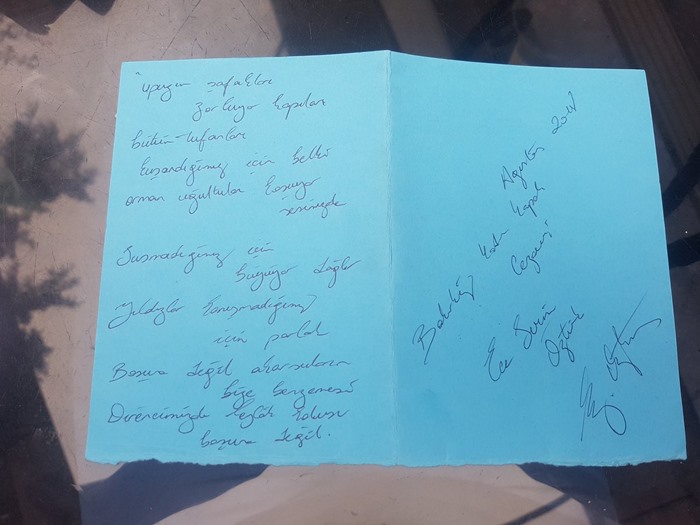 upuzun şafakları
zorluyor kapıları
bütün tufanları
kuşandığımız için belki
orman uğultuları koşuyor
sesimizde
Susmadığımız için
büyüyor dağlar
Yıldızlar konuşmadığımız
için parlak
Boşuna değil akarsuların
bize benzemesi
Direncimizde leylak kokusu
boşuna değil.
Bakırköy Kadın Kapalı
Cezaevi
Ağustos
Ece Serin
Öztürk